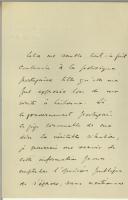 Cela me semble tout à fait
contraire à la politique
portugaise telle qu'elle me
fut exposée lors de ma
visite à Lisbonne. Si
le gouvernement portugais
le juge convenable de me
dire la véritable situation,
je pourrai me servir de
cette information pour
empêcher l'opinion publique